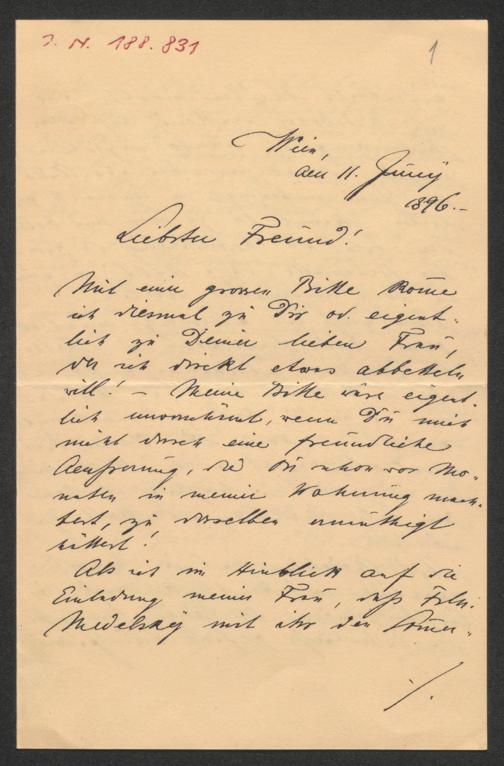 J. N. 188.831
1
Wien,
am 11. Juny
1896.-
Liebster Freund!
Mit einer grossen Bitte kom̅e
ich diesmal zu Dir od. eigent-
lich zu Deiner lieben Frau,
der ich direkt etwas abbetteln
will! – Meine Bitte wäre eigent-
lich unverschämt, wenn Du mich
nicht durch eine freundliche
Aeusserung, die Du schon vor Mo-
naten in meiner Wohnung mach-
test, zu derselben ermuthigt
hättest!
Als ich im Hinblick auf die
Einladung meiner Frau, daß Frln.
Medelsky mit ihr den Som̅er-
./.